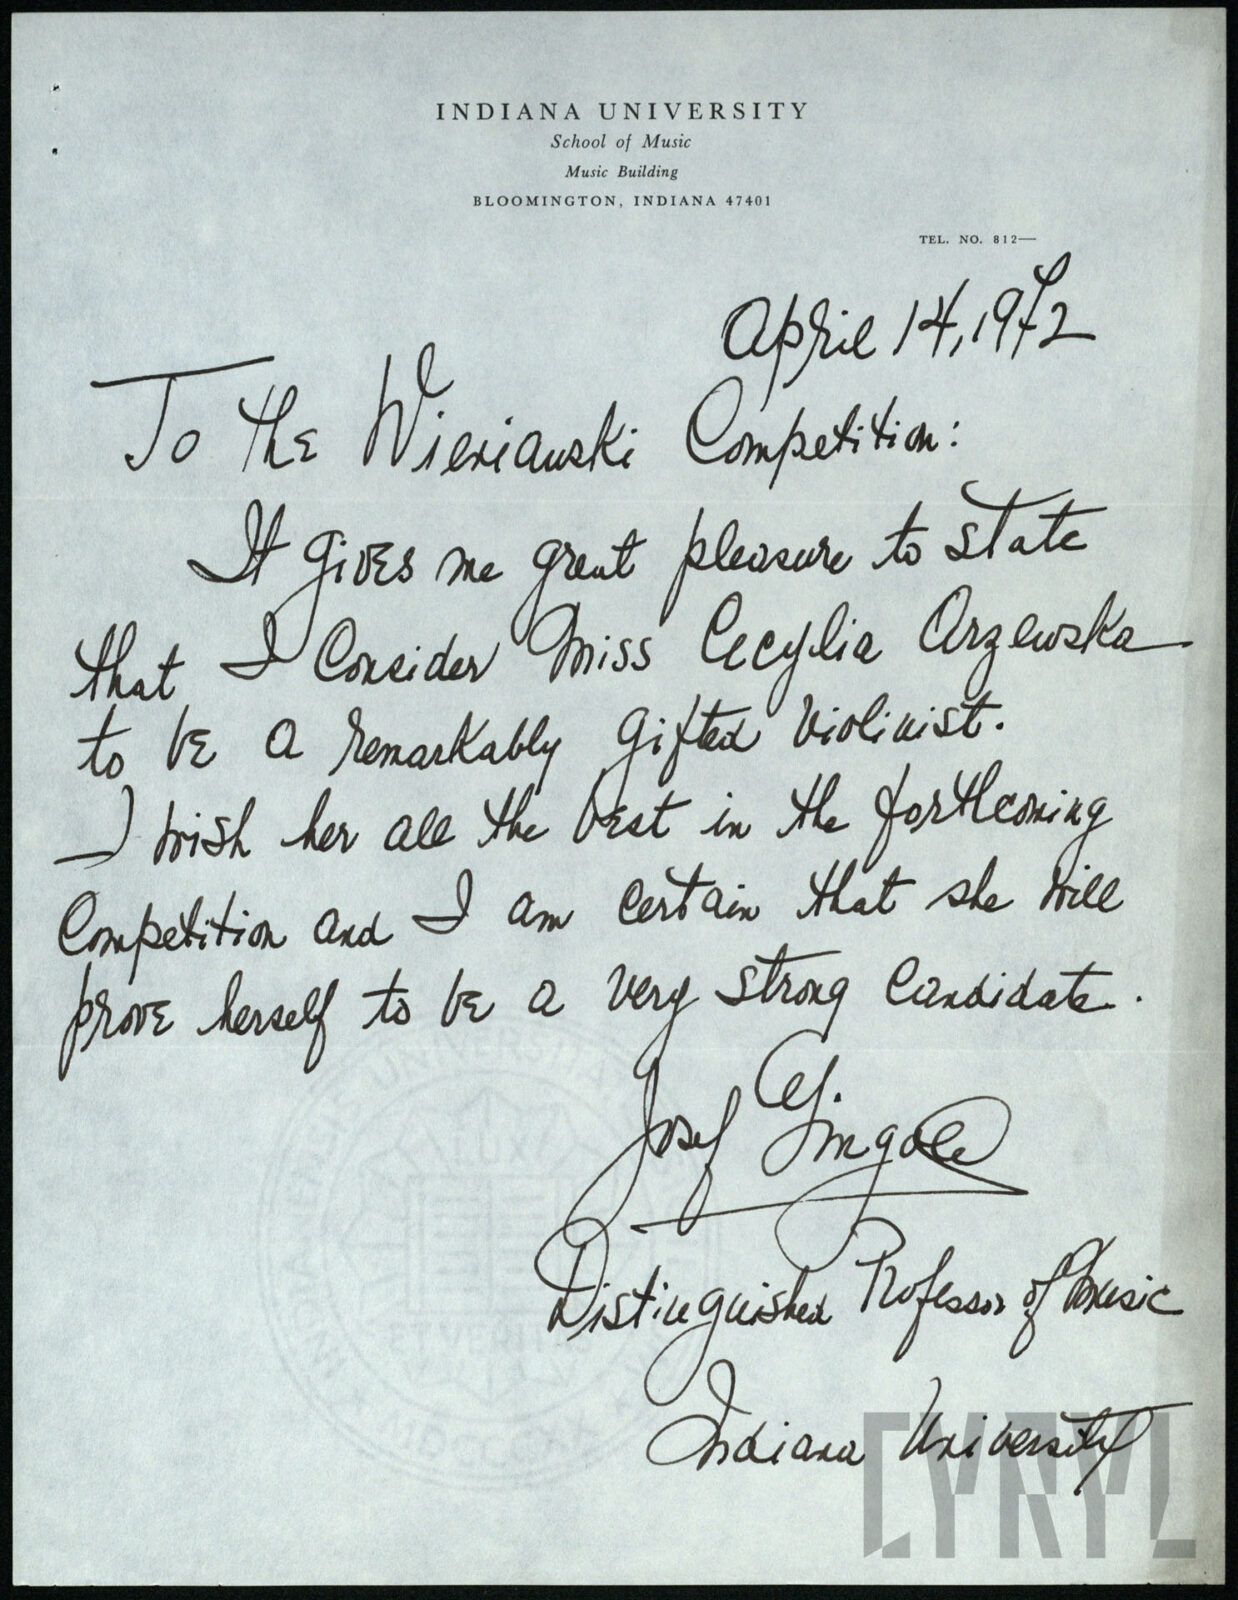 INDIANA UNIVERSITY
School of Music
Music Building
BLOOMINGTON, INDIANA 47401
TEL. NO. 812—
April 14, 1972
To the Wieniawski Competition:
It gives me great pleasure to state
that I consider Miss Cecylia Arzewska
to be a remarkably gifted violinist.
I wish her all the best in the forthcoming
Competition and I am certain that she will
prove herself to be a very strong candidate.
Josef Gingold
Distinguished Professor of Music
Indiana University
CYRYL
INDIANENSIS UNIVERSITATIS
LUX
ET VERITAS
MDCCCXX